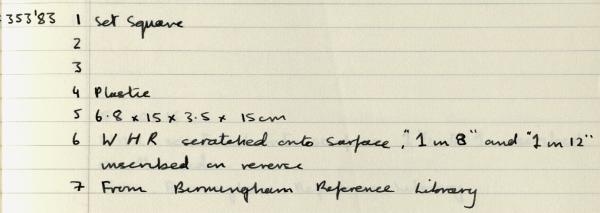 353'83 1 Set Square
2
3
4 Plastic
5 6.8 x 15 x 3.5 x 15cm
6 W H R scratched onto surface, "1 in 8" and "1 in 12"
inscribed on reverse
7 From Birmingham Reference Library